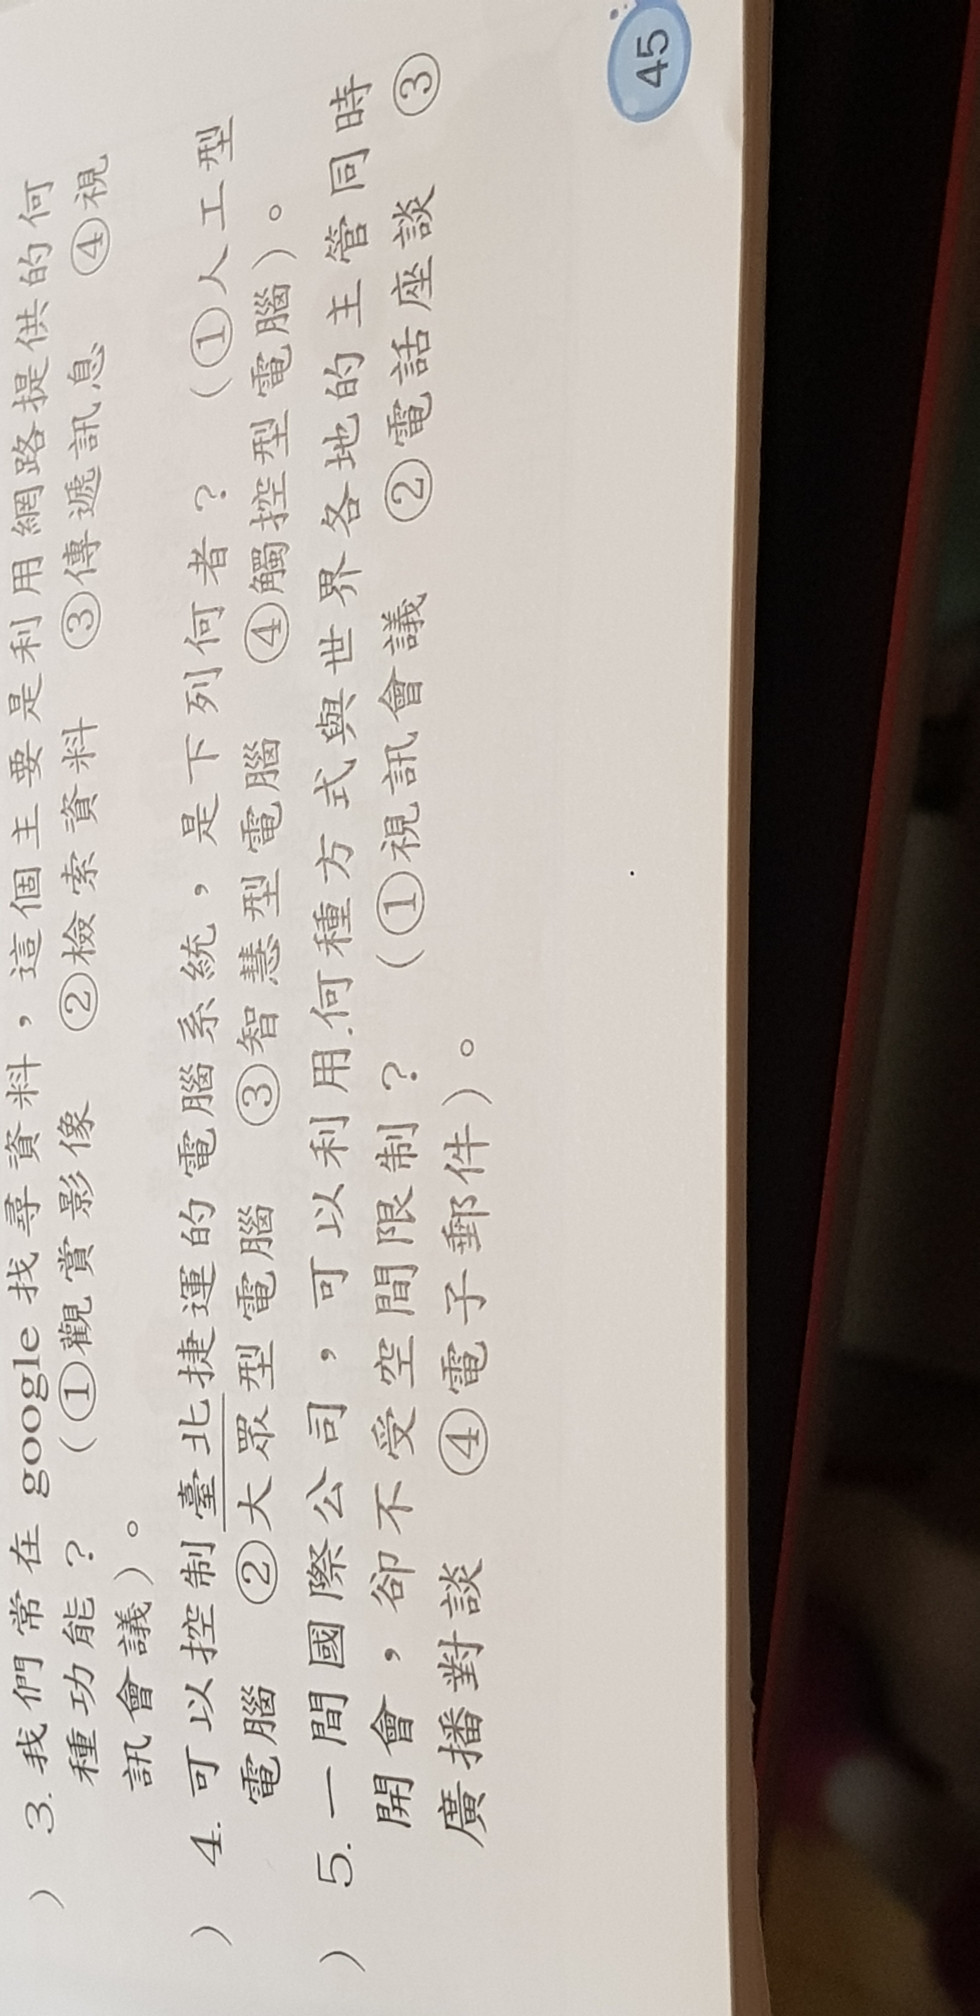 ) 3. 我們常在google找尋資料，這個主要是利用網路提供的何
種功能？（①觀賞影像 ②檢索資料 ③傳遞訊息 ④視
訊會議）。
) 4. 可以控制臺北捷運的電腦系統，是下列何者？（①人工型
電腦 ②大眾型電腦 ③智慧型電腦 ④觸控型電腦）。
) 5. 一間國際公司，可以利用何種方式與世界各地的主管同時
開會，卻不受空間限制？（①視訊會議 ②電話座談 ③
廣播對談 ④電子郵件）。
45